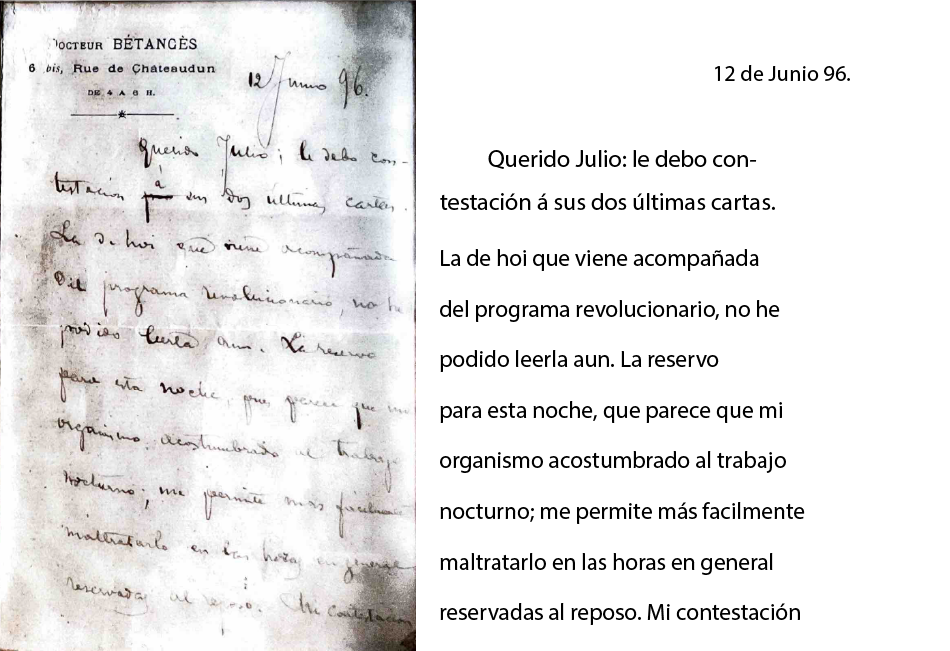 DOCTEUR BÉTANCÈS
6 bis, Rue de Châteaudun
DE 4 A 6 H.
12 Junio 96.
Querido Julio; le debo con-
testación á sus dos últimas cartas.
La de hoi que viene acompañada
del programa revolucionario, no he
podido leerla aun. La reservo
para esta noche, pues parece que mi
organismo, acostumbrado al trabajo
nocturno; me permite mas facilmente
maltratarlo en las horas en general
reservadas al reposo. Mi contestación
12 de Junio 96.
Querido Julio: le debo con-
testación á sus dos últimas cartas.
La de hoi que viene acompañada
del programa revolucionario, no he
podido leerla aun. La reservo
para esta noche, que parece que mi
organismo acostumbrado al trabajo
nocturno; me permite más facilmente
maltratarlo en las horas en general
reservadas al reposo. Mi contestación